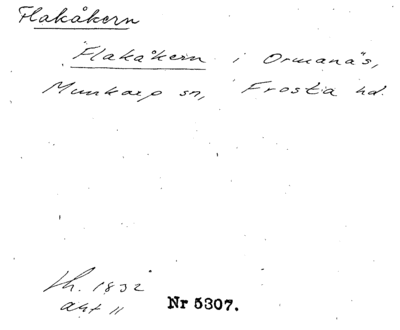 Flakåkern
Flakåkern i Ormanäs,
Munkarp sn, Frosta hd.
sh. 1832
akt 11
Nr 5307.